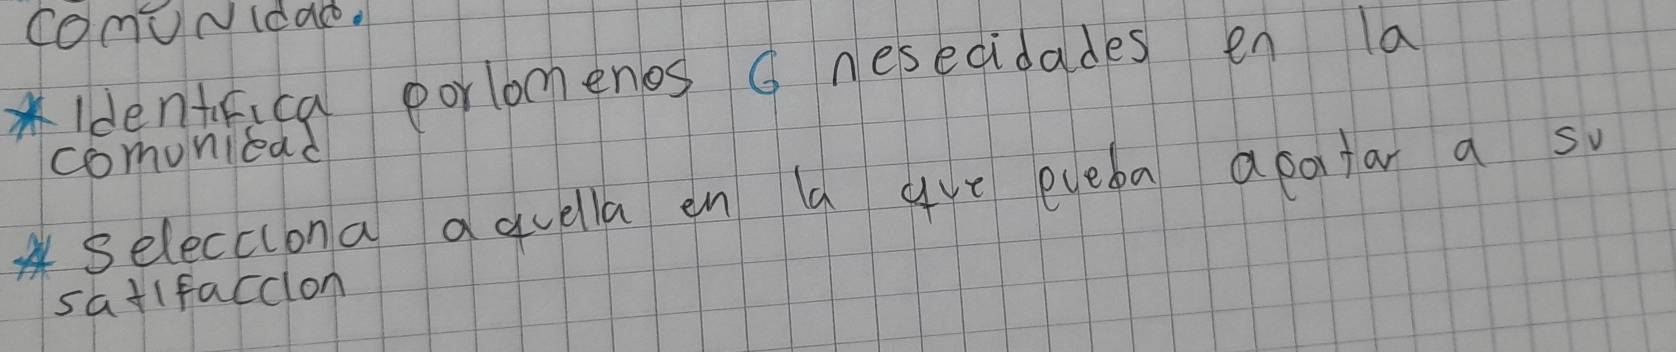 comuNidad.
* Identifica porlomenos 6 nesecidades en la
comunidad
* selecciona aquella en la que pueba apotar a su
satifaccion